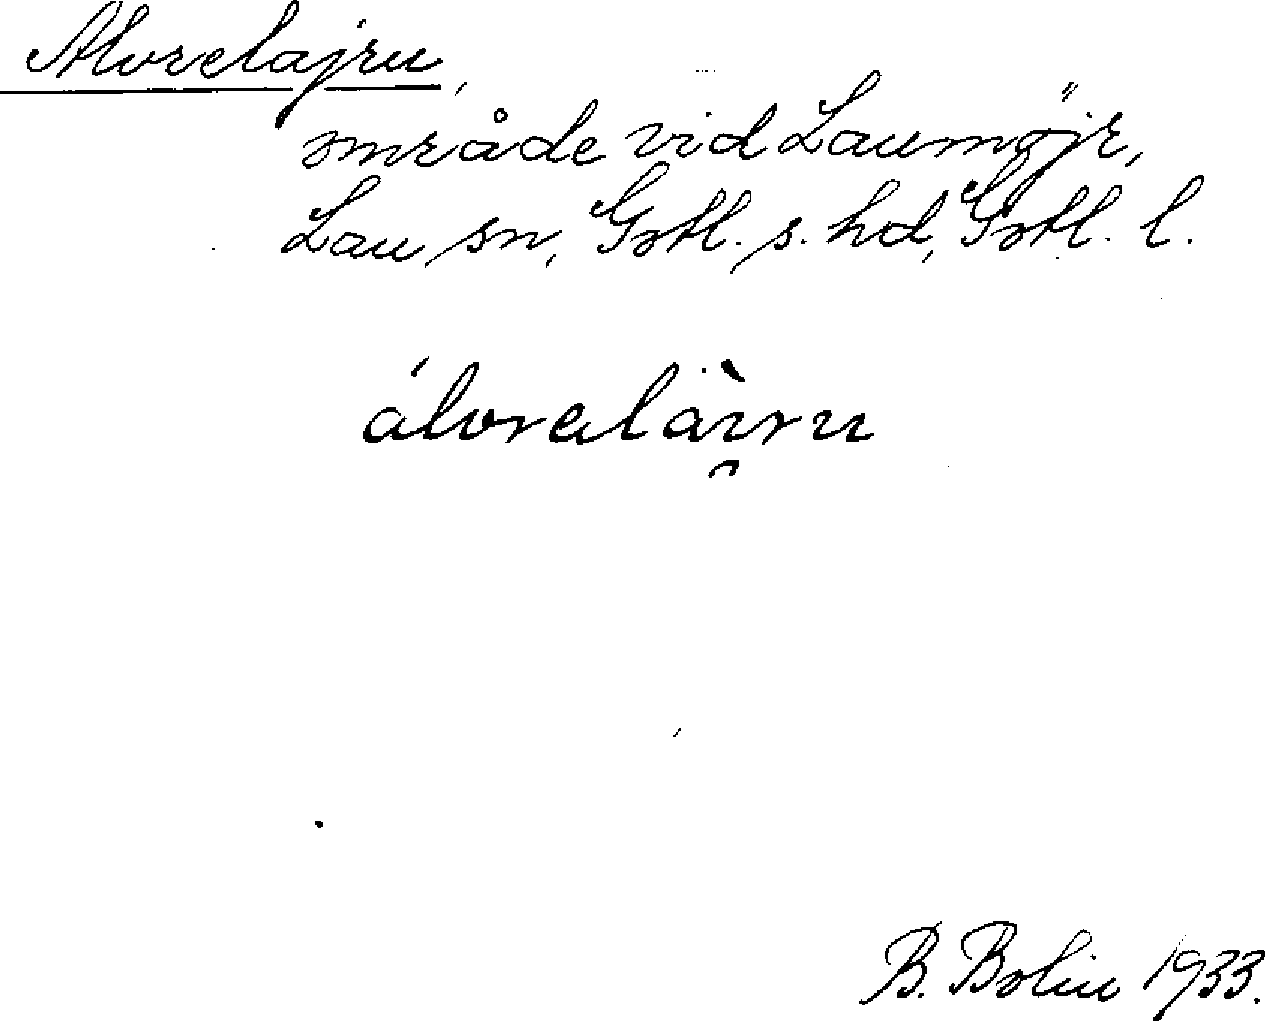 Alvrelajru,
område vid Laumöjr,
Lau sn, Gotl. s. hd, Gotl. l.
álvrelàiru
B. Bolin 1933.